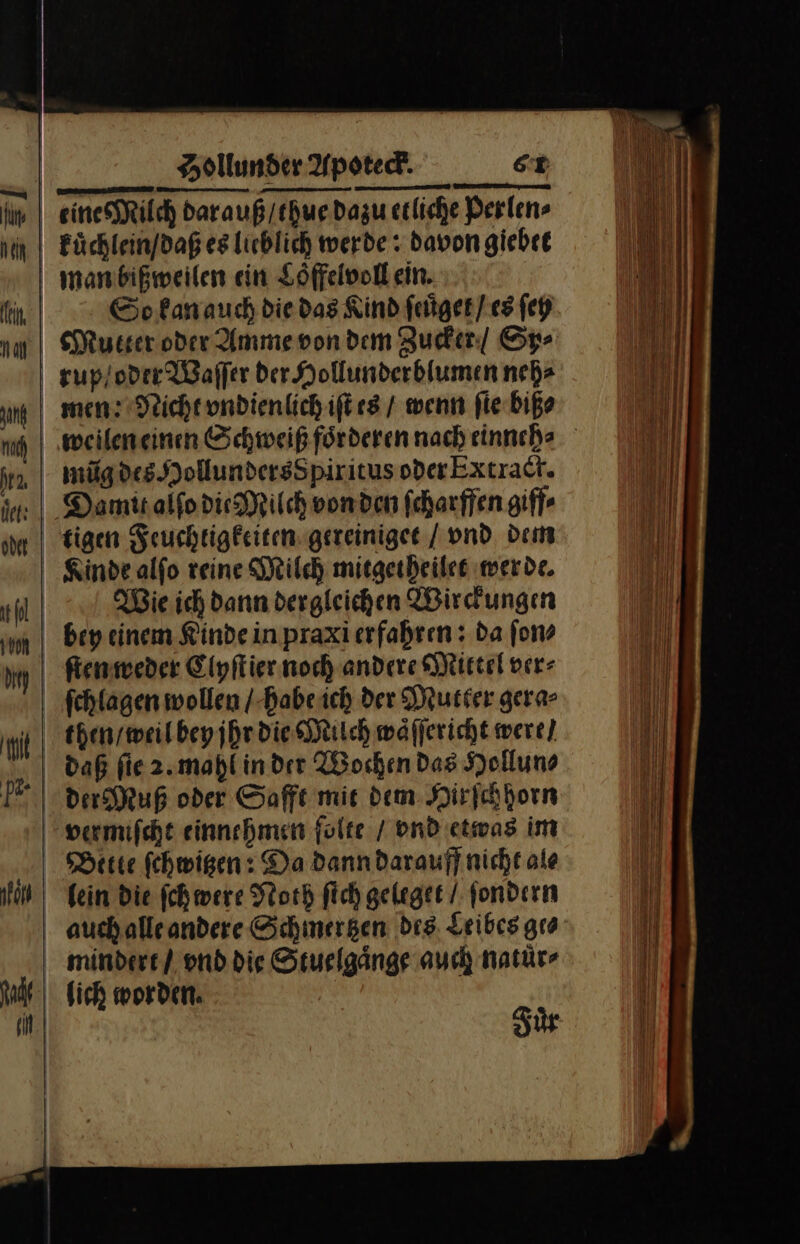 Hollunder Apoteck. 61
eine Milch darauß / thue dazu etliche Perlen⸗
kuͤchlein / daß es lieblich werde: davon giebet
man bißweilen ein Loͤffelvoll ein.
So kan auch die das Kind ſeuͤget / es ſey
Mutter oder Amme von dem Zucker / Sy⸗
rup / oder Waſſer der Hollunderblumen neh⸗
men: Nicht vndienlich iſt es / wenn ſie biß⸗
weilen einen Schweiß foͤrderen nach einneh⸗
muͤg des Hollunders Spiritus oder Extract.
Damit alſo die Milch von den ſcharffen giff⸗
tigen Feuchtigkeiten gereiniget / vnd dem
Kinde alſo reine Milch mitgetheilet werde.
Wie ich dann dergleichen Wirckungen
bey einem Kinde in praxi erfahren: da ſon⸗
ſten weder Clyſtier noch andere Mittel ver⸗
ſchlagen wollen / habe ich der Mutter gera⸗
then / weil bey jhr die Milch waͤſſericht were /
daß ſie 2. mahl in der Wochen das Hollun⸗
der Muß oder Safft mit dem Hirſchhorn
vermiſcht einnehmen ſolte / vnd etwas im
Bette ſchwitzen: Da dann darauff nicht al⸗
lein die ſchwere Noth ſich geleget / ſondern
auch alle andere Schmertzen des Leibes ge⸗
mindert / vnd die Stuelgaͤnge auch natuͤr⸗
lich worden.
Fuͤr